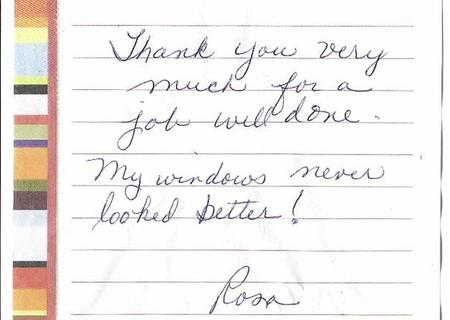 Thank you very
much for a
job well done.
My windows never
looked better!
Rosa